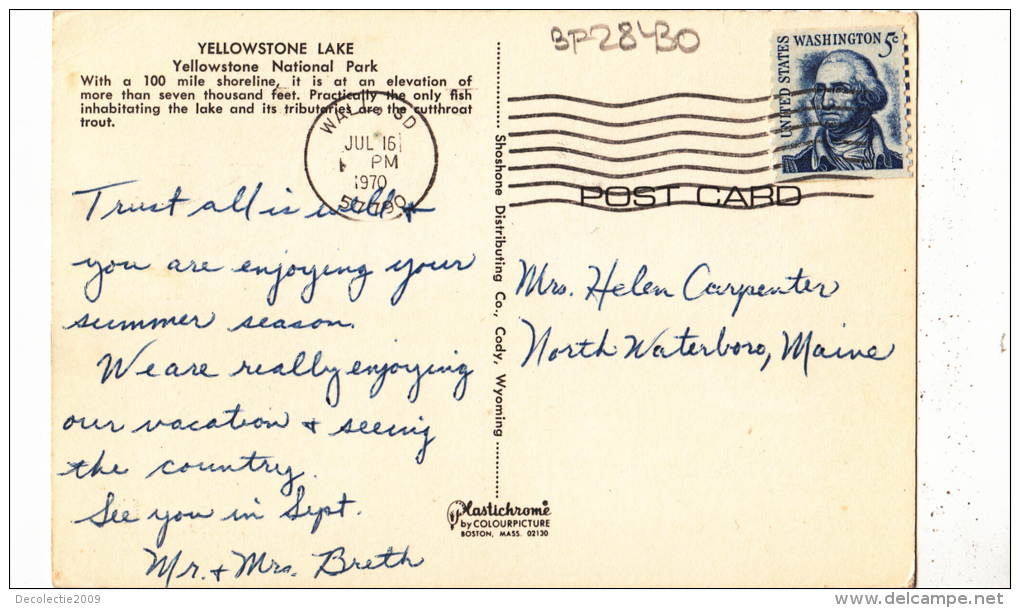 YELLOWSTONE LAKE
Yellowstone National Park
With a 100 mile shoreline, it is at an elevation of
more than seven thousand feet. Practically the only fish
inhabitating the lake and its tributaries are the cutthroat
trout.
SD
JUL 16
PM
1970
Trust all is well &
you are enjoying your
summer season.
We are really enjoying
our vacation & seeing
the country.
See you in Sept.
Mr. & Mrs. Breth
Shoshone Distributing Co., Cody, Wyoming
Plastichrome
by COLOURPICTURE
BOSTON, MASS. 02130
BP284BO
UNITED STATES
WASHINGTON 5c
POST CARD
Mrs. Helen Carpenter
North Waterboro, Maine
Decolectie2009
delcampe.net